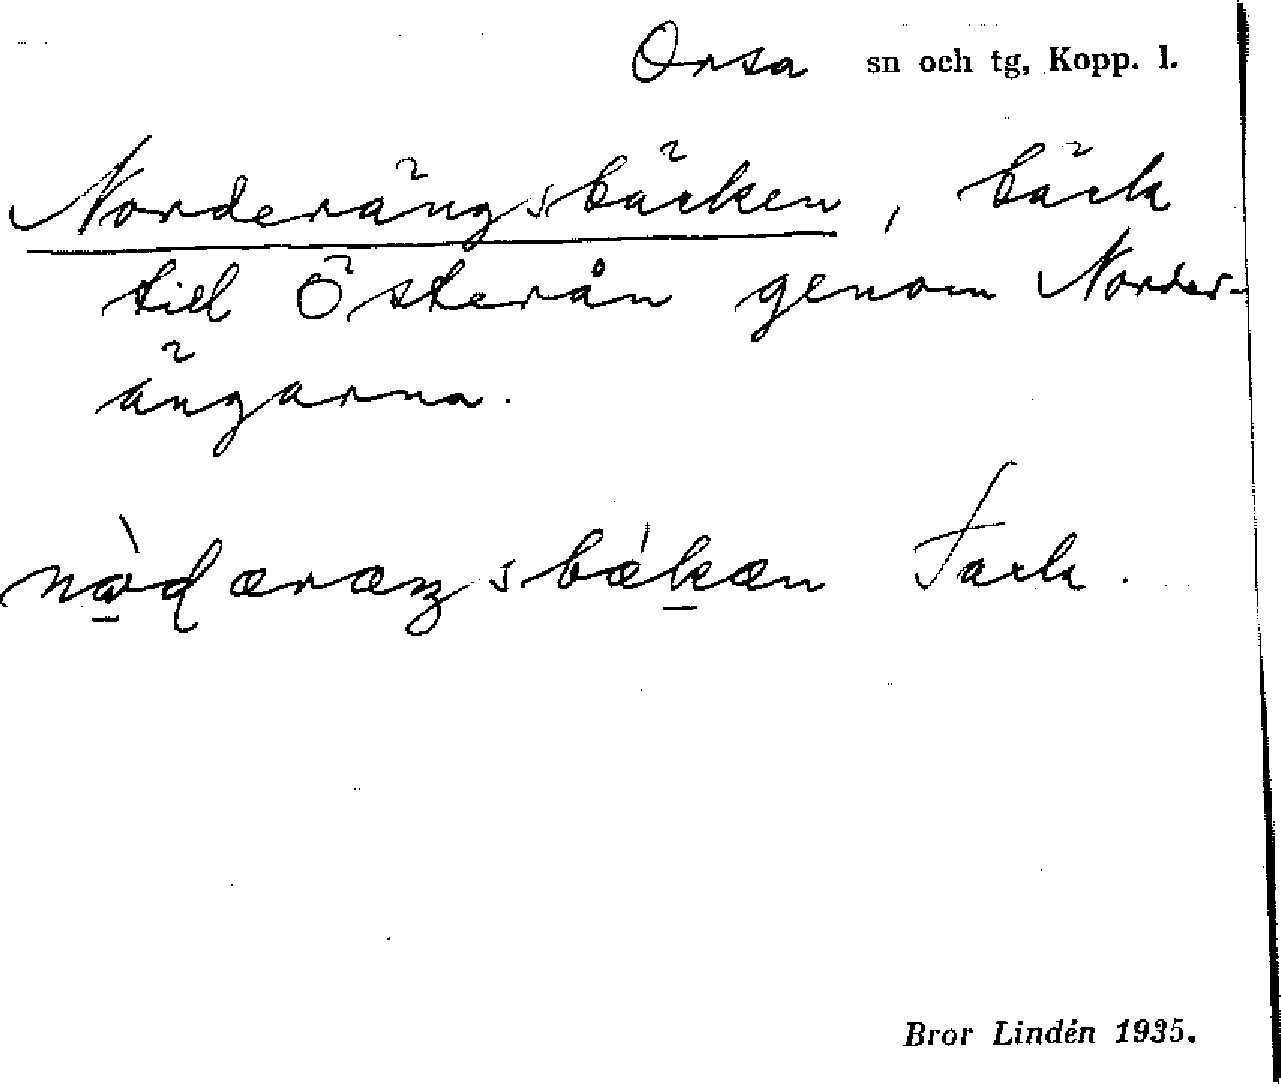 Orsa sn och tg, Kopp. l.
Norderängsbäcken, bäck
till Österån genom Norder-
ängarna.
Bror Lindén 1935.